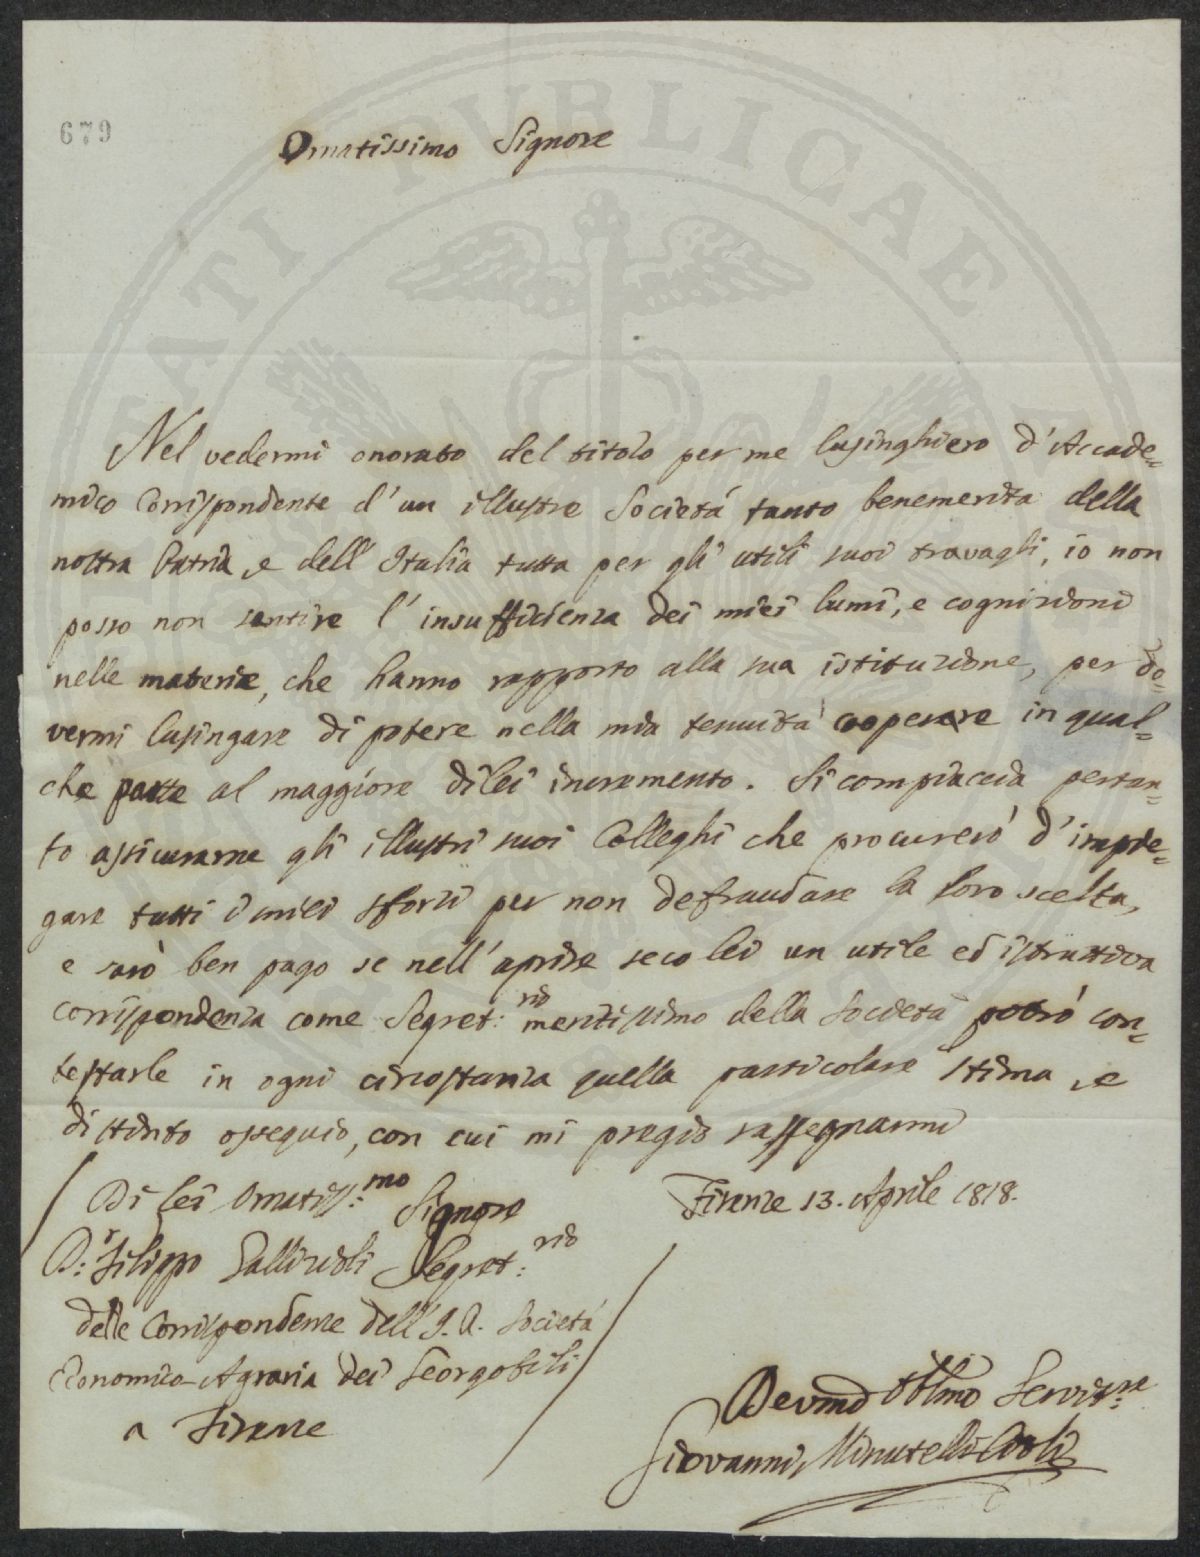 679
Ornatissimo Signore
Nel vedermi onorato del titolo per me lusinghiero d'Accade=
mico Corrispondente d'un illustre Società tanto benemerita della
nostra Patria, e dell'Italia tutta per gli utili suoi travagli, io non
posso non sentire l'insufficienza dei miei lumi, e cognizioni
nelle materie, che hanno rapporto alla sua istituzione, per do=
vermi lusingare di potere nella mia tenuità cooperare in qual=
che parte al maggiore di lei incremento. Si compiaccia pertan=
to assicurarne gli illustri suoi Colleghi che procurerò d'impie=
gare tutti i miei sforzi per non defraudare la loro scelta,
e sarò ben pago se nell'aprire seco lei un utile ed istruttiva
corrispondenza come Segret:rio meritissimo della Società potrò con=
testarle in ogni circostanza quella particolare stima, e
distinto ossequio, con cui mi pregio rassegnarmi
Di lei Ornatiss:mo Signore
Firenze 13. Aprile 1818.
D:r Filippo Gallizioli Segret:rio
delle Corrispondenze dell'I. R. Società
Economico-Agraria dei Georgofili
a Firenze
Devmo Obbmo Servit:re
Giovanni Minutelli